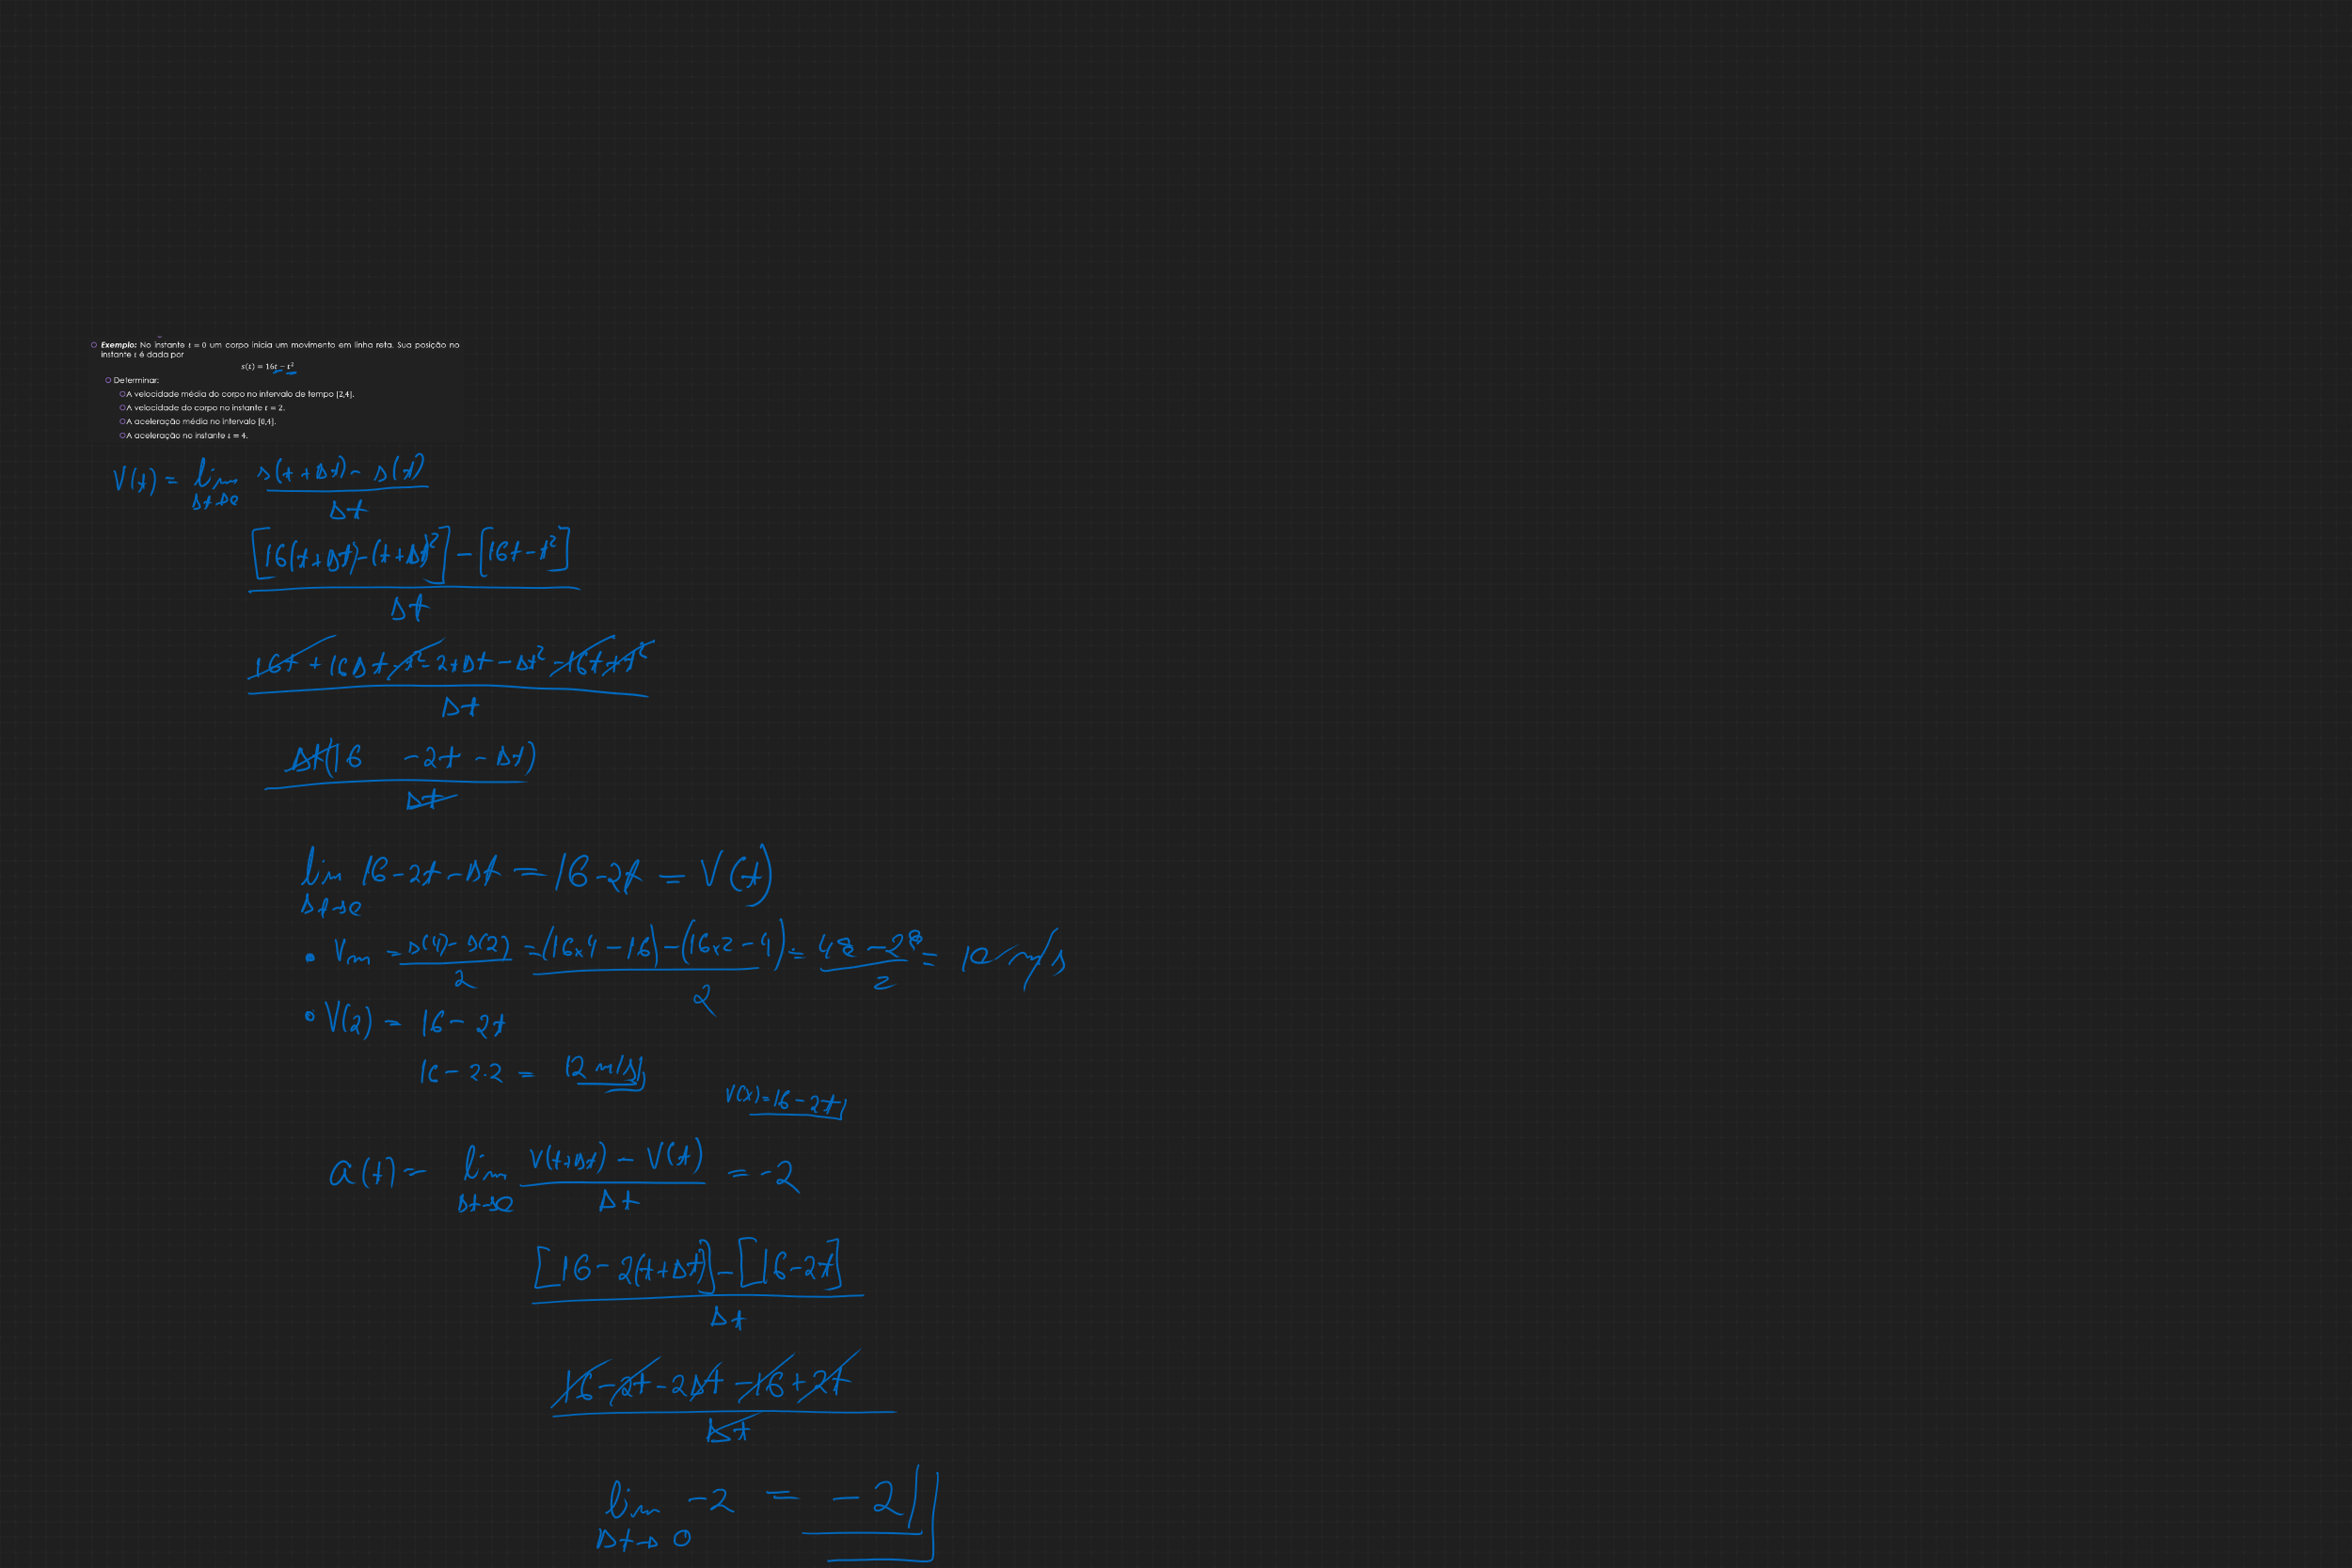 Exemplo: No instante t = 0 um corpo inicia um movimento em linha reta. Sua posição no
instante t é dada por
s(t) = 16t − t²
Determinar:
A velocidade média do corpo no intervalo de tempo [2,4].
A velocidade do corpo no instante t = 2.
A aceleração média no intervalo [0,4].
A aceleração no instante t = 4.
V(t) = lim Δt→0 s(t+Δt) − s(t) / Δt
[16(t+Δt)−(t+Δt)²] − [16t−t²] / Δt
16t + 16Δt − t² − 2tΔt − Δt² − 16t + t² / Δt
Δt(16 − 2t − Δt) / Δt
lim Δt→0 16 − 2t − Δt = 16 − 2t = V(t)
• Vm = s(4) − s(2) / 2 = (16×4 − 16) − (16×2 − 4) / 2 = 48 − 28 / 2 = 10 m/s
• V(2) = 16 − 2t
16 − 2.2 = 12 m/s
V(x) = 16 − 2t
a(t) = lim Δt→0 V(t+Δt) − V(t) / Δt = −2
[16 − 2(t+Δt)] − [16 − 2t] / Δt
16 − 2t − 2Δt − 16 + 2t / Δt
lim Δt→0 −2 = −2